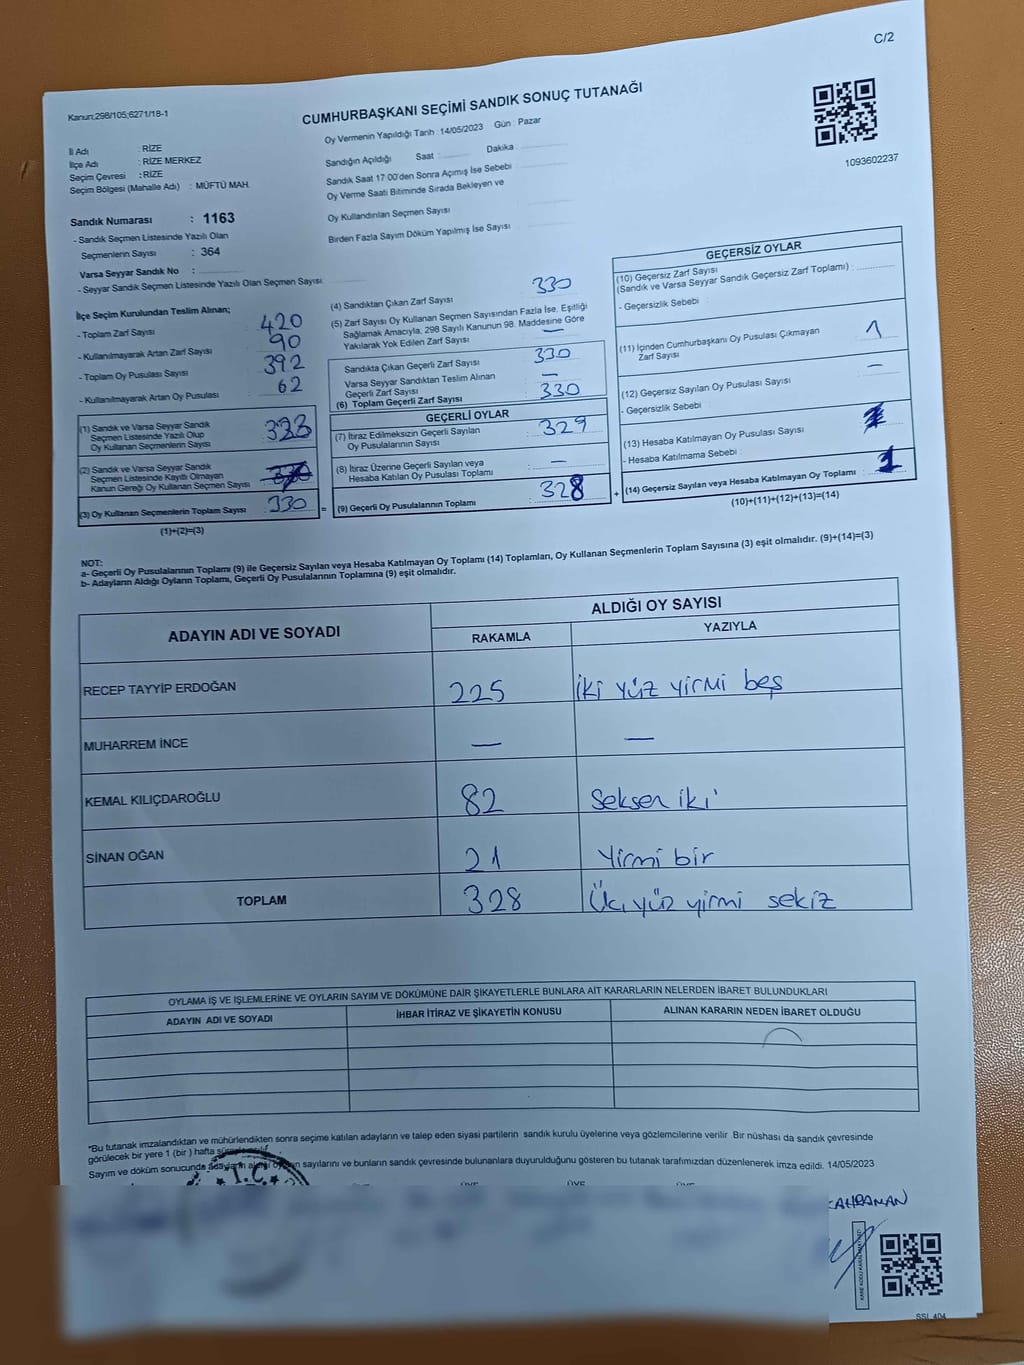 C/2
Kanun;298/105;6271/18-1
CUMHURBAŞKANI SEÇİMİ SANDIK SONUÇ TUTANAĞI
Oy Vermenin Yapıldığı Tarih : 14/05/2023 Gün : Pazar
İl Adı : RİZE
İlçe Adı : RİZE MERKEZ
Seçim Çevresi : RİZE
Seçim Bölgesi (Mahalle Adı) : MÜFTÜ MAH.
Sandığın Açıldığı Saat : Dakika :
Sandık Saat 17:00'den Sonra Açımış İse Sebebi
Oy Verme Saati Bitiminde Sırada Bekleyen ve
Oy Kullandırılan Seçmen Sayısı
Birden Fazla Sayım Döküm Yapılmış İse Sayısı
1093602237
Sandık Numarası : 1163
- Sandık Seçmen Listesinde Yazılı Olan
Seçmenlerin Sayısı : 364
Varsa Seyyar Sandık No :
- Seyyar Sandık Seçmen Listesinde Yazılı Olan Seçmen Sayısı
İlçe Seçim Kurulundan Teslim Alınan;
- Toplam Zarf Sayısı 420
- Kullanılmayarak Artan Zarf Sayısı 90
- Toplam Oy Pusulası Sayısı 392
- Kullanılmayarak Artan Oy Pusulası 62
(1) Sandık ve Varsa Seyyar Sandık
Seçmen Listesinde Yazılı Olup
Oy Kullanan Seçmenlerin Sayısı
(2) Sandık ve Varsa Seyyar Sandık
Seçmen Listesinde Kayıtlı Olmayan
Kanun Gereği Oy Kullanan Seçmen Sayısı
(3) Oy Kullanan Seçmenlerin Toplam Sayısı 330
(1)+(2)=(3)
(4) Sandıktan Çıkan Zarf Sayısı 330
(5) Zarf Sayısı Oy Kullanan Seçmen Sayısından Fazla İse, Eşitliği
Sağlamak Amacıyla, 298 Sayılı Kanunun 98. Maddesine Göre
Yakılarak Yok Edilen Zarf Sayısı —
Sandıkta Çıkan Geçerli Zarf Sayısı 330
Varsa Seyyar Sandıktan Teslim Alınan
Geçerli Zarf Sayısı —
(6) Toplam Geçerli Zarf Sayısı 330
GEÇERLİ OYLAR
(7) İtiraz Edilmeksizin Geçerli Sayılan
Oy Pusulalarının Sayısı 329
(8) İtiraz Üzerine Geçerli Sayılan veya
Hesaba Katılan Oy Pusulası Toplamı —
= (9) Geçerli Oy Pusulalarının Toplamı 328 +
GEÇERSİZ OYLAR
(10) Geçersiz Zarf Sayısı
(Sandık ve Varsa Seyyar Sandık Geçersiz Zarf Toplamı) :
- Geçersizlik Sebebi :
(11) İçinden Cumhurbaşkanı Oy Pusulası Çıkmayan
Zarf Sayısı 1
(12) Geçersiz Sayılan Oy Pusulası Sayısı —
- Geçersizlik Sebebi
(13) Hesaba Katılmayan Oy Pusulası Sayısı
- Hesaba Katılmama Sebebi
(14) Geçersiz Sayılan veya Hesaba Katılmayan Oy Toplamı 1
(10)+(11)+(12)+(13)=(14)
NOT:
a- Geçerli Oy Pusulalarının Toplamı (9) ile Geçersiz Sayılan veya Hesaba Katılmayan Oy Toplamı (14) Toplamları, Oy Kullanan Seçmenlerin Toplam Sayısına (3) eşit olmalıdır. (9)+(14)=(3)
b- Adayların Aldığı Oyların Toplamı, Geçerli Oy Pusulalarının Toplamına (9) eşit olmalıdır.
ADAYIN ADI VE SOYADI ALDIĞI OY SAYISI
RAKAMLA YAZIYLA
RECEP TAYYİP ERDOĞAN 225 iki yüz yirmi beş
MUHARREM İNCE — —
KEMAL KILIÇDAROĞLU 82 Seksen iki
SİNAN OĞAN 21 Yirmi bir
TOPLAM 328 Üç yüz yirmi sekiz
OYLAMA İŞ VE İŞLEMLERİNE VE OYLARIN SAYIM VE DÖKÜMÜNE DAİR ŞİKAYETLERLE BUNLARA AİT KARARLARIN NELERDEN İBARET BULUNDUKLARI
ADAYIN ADI VE SOYADI İHBAR İTİRAZ VE ŞİKAYETİN KONUSU ALINAN KARARIN NEDEN İBARET OLDUĞU
*Bu tutanak imzalandıktan ve mühürlendikten sonra seçime katılan adayların ve talep eden siyasi partilerin sandık kurulu üyelerine veya gözlemcilerine verilir. Bir nüshası da sandık çevresinde
görülecek bir yere 1 (bir) hafta
Sayım ve döküm sonucunda adayların aldığı oyların sayılarını ve bunların sandık çevresinde bulunanlara duyurulduğunu gösteren bu tutanak tarafımızdan düzenlenerek imza edildi. 14/05/2023
T.C.
ÜYE ÜYE ÜYE
KAHRAMAN
SSL 404